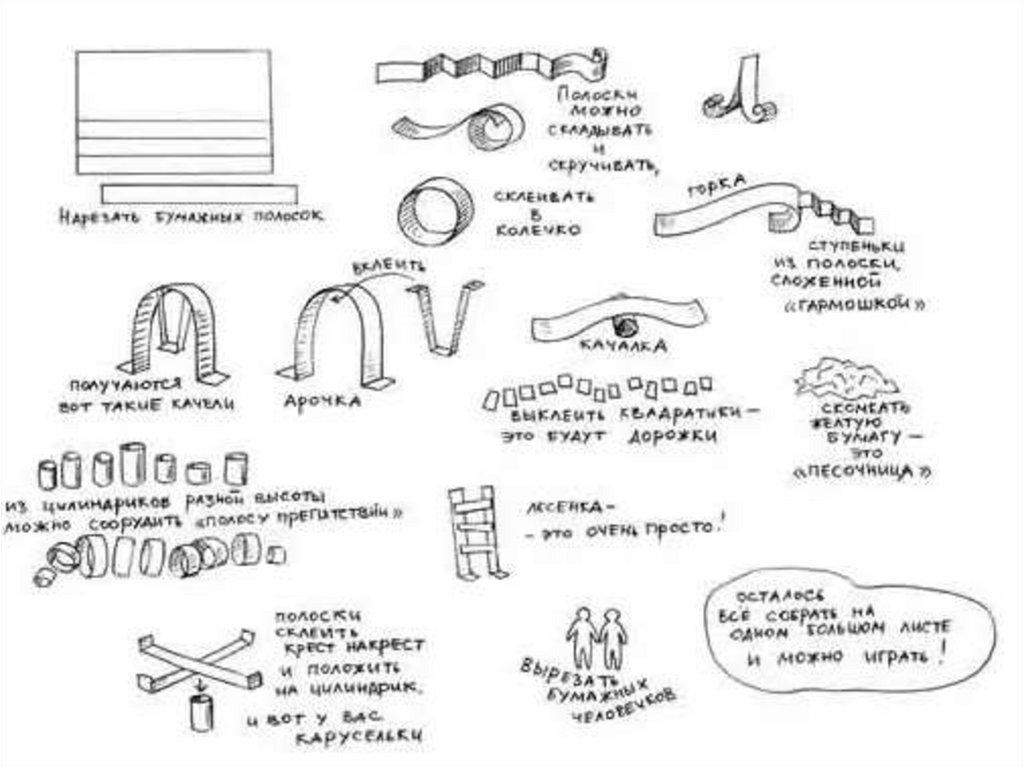 Нарезать бумажных полосок
Полоски
можно
складывать
и
скручивать,
склеивать
в
колечко
горка
ступеньки
из полоски,
сложенной
«гармошкой»
получаются
вот такие качели
вклеить
Арочка
качалка
выклеить квадратики –
это будут дорожки
скомкать
желтую
бумагу –
это
«песочница»
из цилиндриков разной высоты
можно соорудить «полосу препятствий»
лесенка –
– это очень просто!
полоски
склеить
крест накрест
и положить
на цилиндрик,
и вот у вас
карусельки
Вырезать
бумажных
человечков
осталось
всё собрать на
одном большом листе
и можно играть!